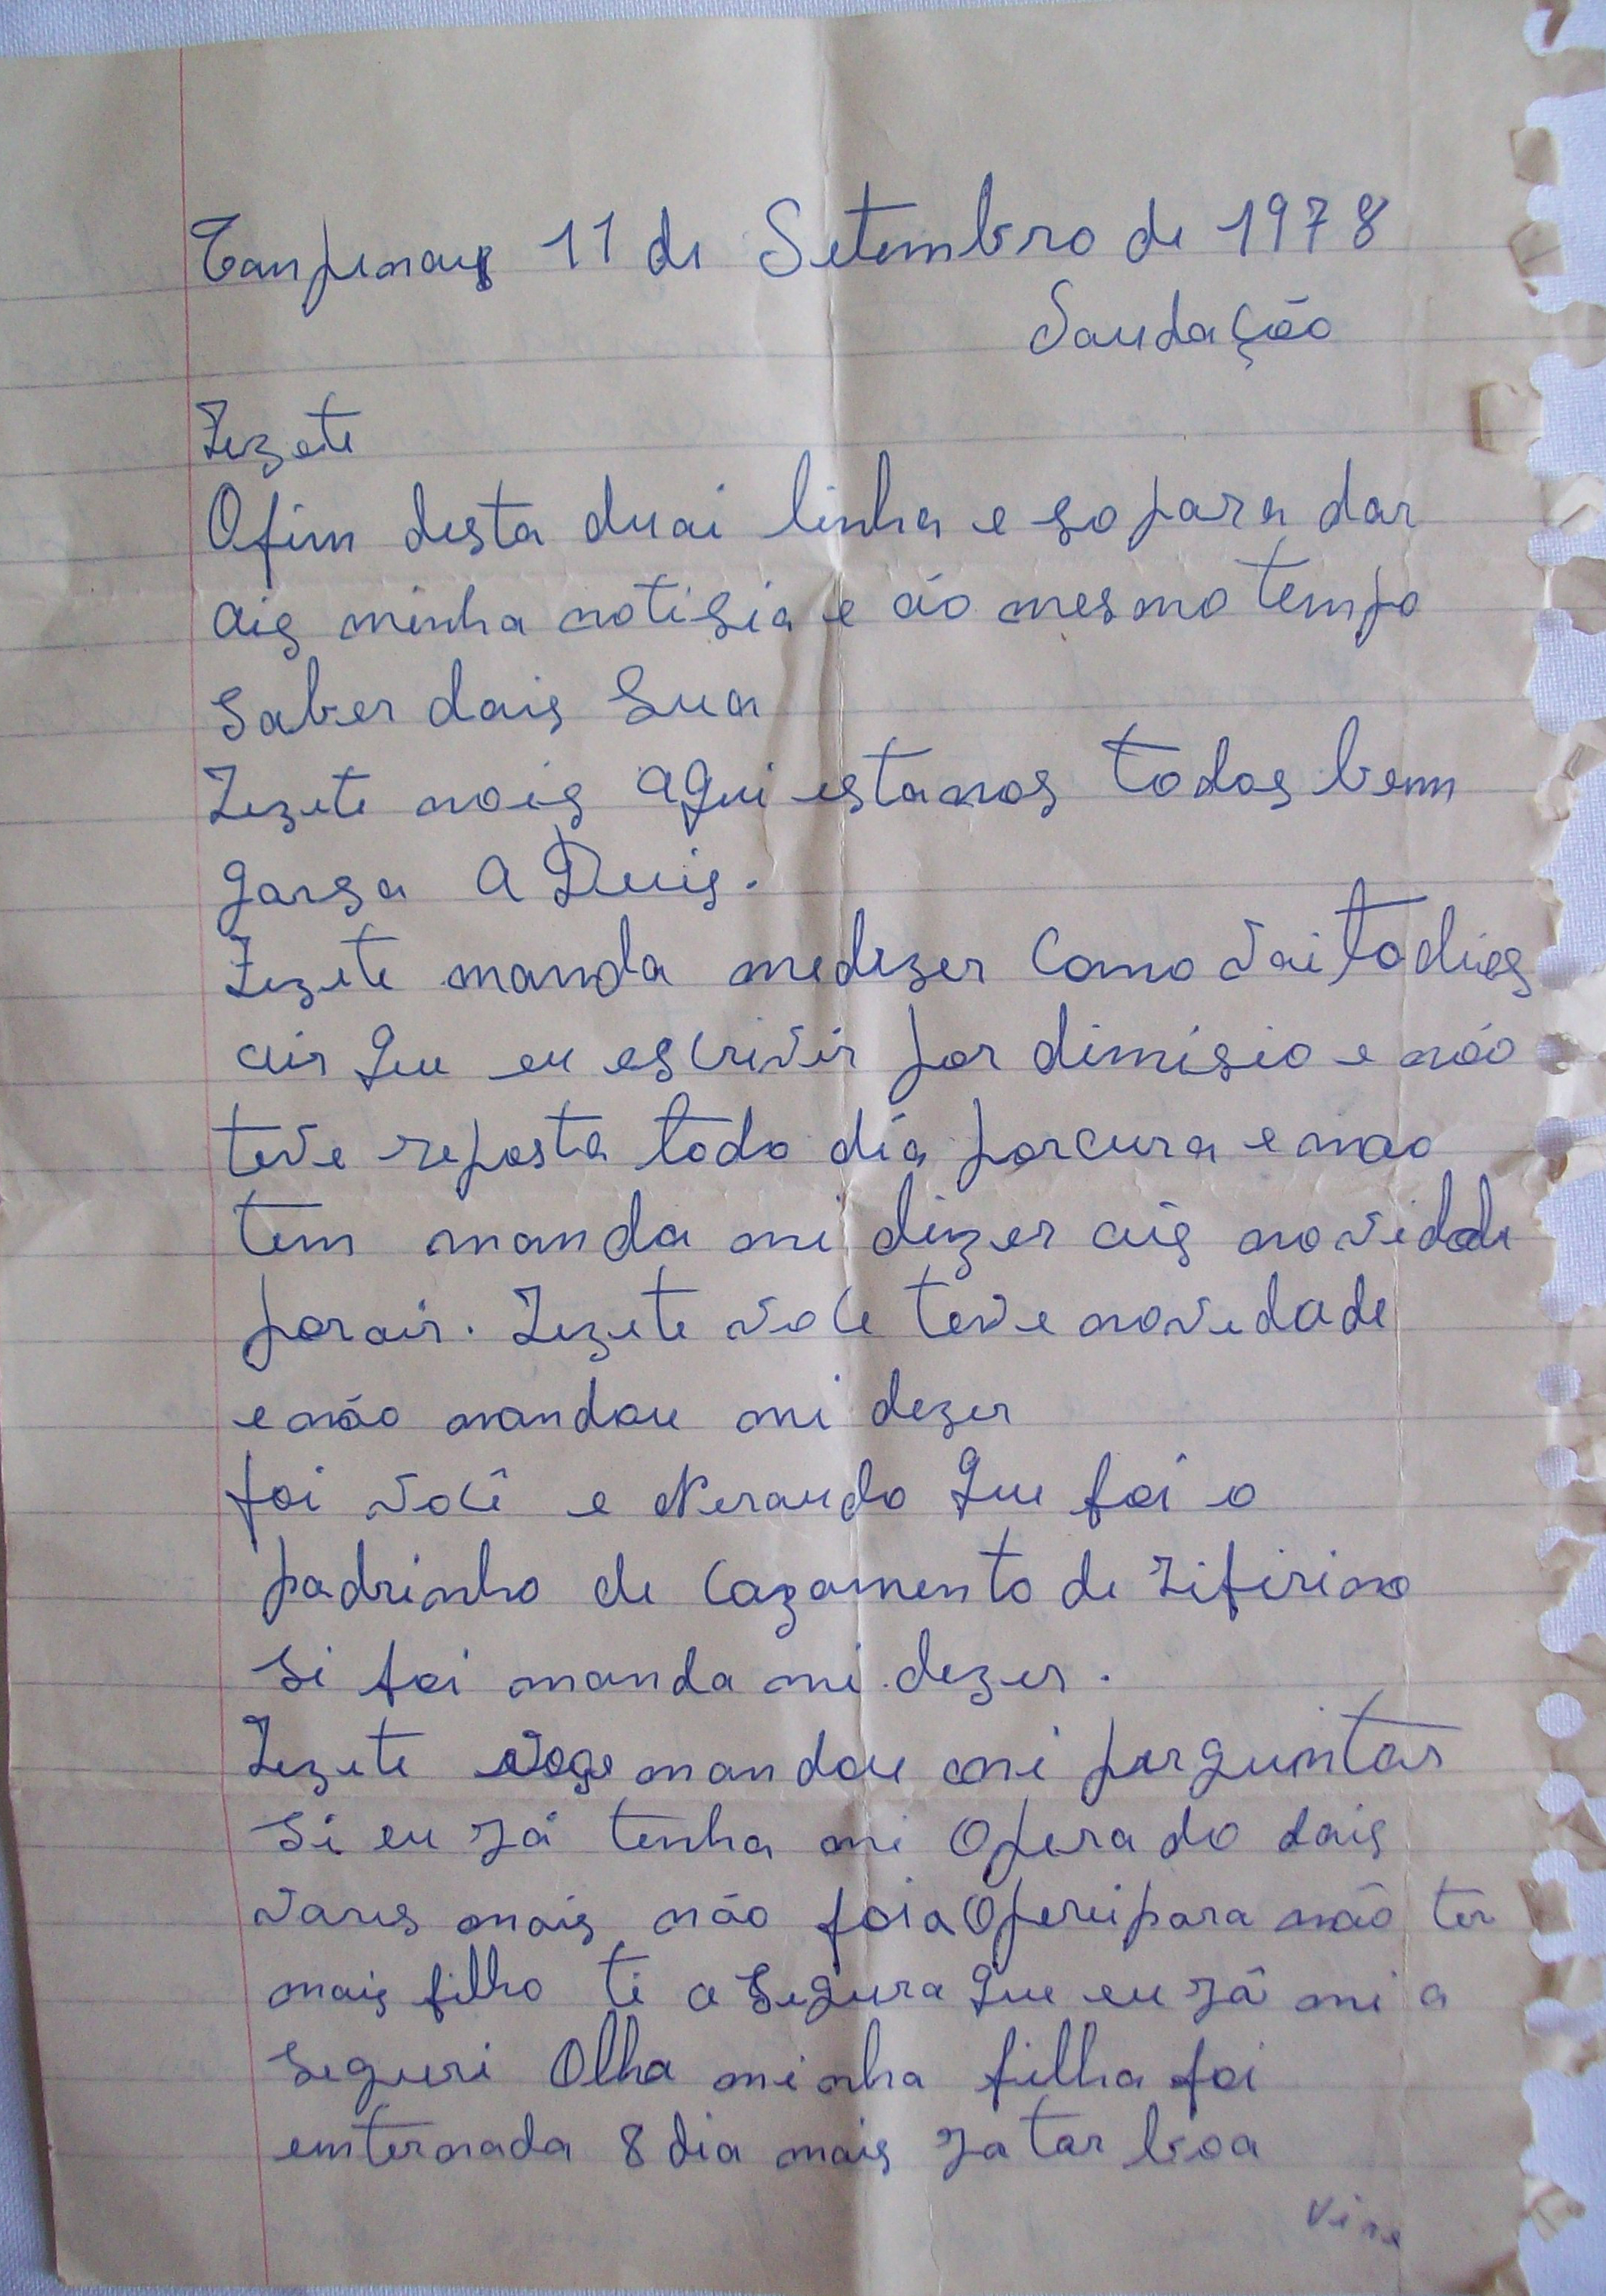 Canpinais 11 de Setembro de 1978
Saudação
Zezete
Ofim desta duai linha e so para dar
ais minha notisia e ão mesmo tempo
saber dais sua
Zezete nois aqui estamos todos bem
garsa a Deuis.
Zezete manda medizer como vai todies
air que eu escrivir por dimisio e não
teve reposta todo dia porcura e nao
tem manda mi dizer ais novidade
porair. Zezete voce teve novedade
e não mandou mi dezer
foi você e Neraudo que foi o
padrinho de cazamento de Zifirino
si foi manda mi dezer.
Zezete voge mandou mi perguntar
si eu já tenha mi operado dais
vares mais não foi a Operei para não ter
mais filho ti a segura que eu já mi a
seguri Olha minha filha foi
enternada 8 dia mais ja tar boa
vire